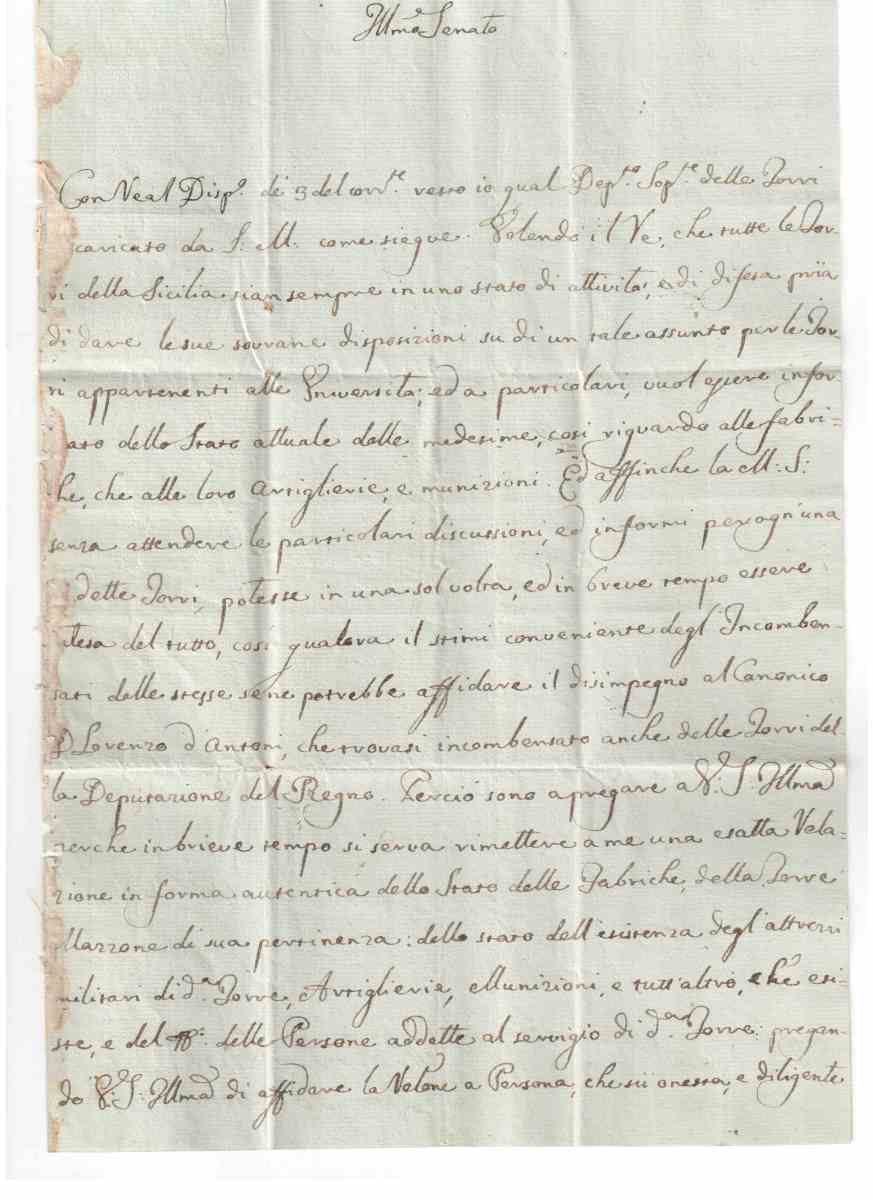 Illmo Senato
Con Real Disp.o de 3 del corr.te resto io qual Dep.to Sop.te delle Torri
caricato da S: M: come siegue. Volendo il Re, che tutte le Tor-
ri della Sicilia sian sempre in uno stato di attività, e di difesa pria
di dare le sue sovrane disposizioni su di un tale assunto per le Tor-
ri appartenenti alle Università; ed a particolari, vuol essere infor-
ato dello Stato attuale delle medesime, così riguardo alle fabri-
he, che alle loro Artiglierie, e munizioni. Ed affinche la M: S:
senza attendere le particolari discussioni, ed informi per ogn'una
dette Torri, potesse in una sol volta, ed in breve tempo essere
itesa del tutto, così qualora il stimi conveniente degl'Incomben-
sati delle stesse se ne potrebbe affidare il disimpegno al Canonico
D Lorenzo d'Antoni, che trovasi incombensato anche delle Torri del-
la Deputazione del Regno. Perciò sono a pregare a V: S: Illma
perche in brieve tempo si serva rimettere a me una esatta Rela-
zione in forma autentica dello Stato delle Fabriche, della Torre
Mazzone di sua pertinenza: dello stato dell'esistenza degl'attrezzi
militari di d.a Torre, Artiglieria, Munizioni, e tutt'altro, che esi-
ste, e del delle Persone addette al servigio di d.a Torre: pregan-
do V: S: Illma di affidare la Relone a Persona, che sii onesta, e diligente